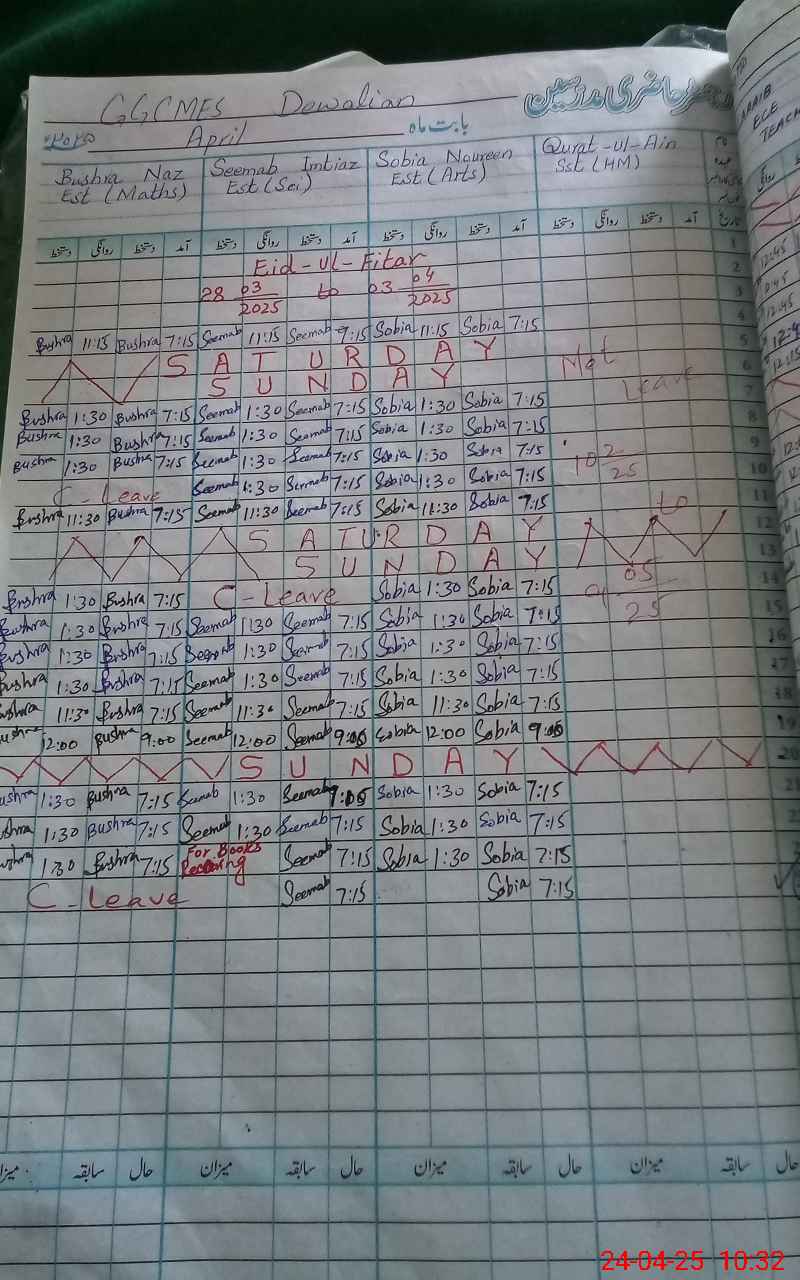 GGCMES Dewalian حاضری مدرسین
۲۰۲۵ April بابت ماہ
Bushra Naz Seemab Imtiaz Sobia Noureen Qurat-ul-Ain
Est (Maths) Est (Sci) Est (Arts) Sst (HM)
دستخط روانگی دستخط آمد دستخط روانگی دستخط آمد دستخط روانگی دستخط آمد دستخط روانگی دستخط آمد تاریخ
1
Eid-ul-Fitar 2
28 03/2025 to 03 04/2025 3
4
Bushra 11:15 Bushra 7:15 Seemab 11:15 Seemab 7:15 Sobia 11:15 Sobia 7:15
SATURDAY 5
SUNDAY Mat Leave 6
Bushra 1:30 Bushra 7:15 Seemab 1:30 Seemab 7:15 Sobia 1:30 Sobia 7:15 7
Bushra 1:30 Bushra 7:15 Seemab 1:30 Seemab 7:15 Sobia 1:30 Sobia 7:15 8
Bushra 1:30 Bushra 7:15 Seemab 1:30 Seemab 7:15 Sobia 1:30 Sobia 7:15 9
C-Leave Seemab 1:30 Seemab 7:15 Sobia 1:30 Sobia 7:15 10
Bushra 11:30 Bushra 7:15 Seemab 11:30 Seemab 7:15 Sobia 11:30 Sobia 7:15 to 11
SATURDAY 12
SUNDAY 13
Bushra 1:30 Bushra 7:15 C-Leave Sobia 1:30 Sobia 7:15 05/25 14
Bushra 1:30 Bushra 7:15 Seemab 1:30 Seemab 7:15 Sobia 1:30 Sobia 7:15 15
Bushra 1:30 Bushra 7:15 Seemab 1:30 Seemab 7:15 Sobia 1:30 Sobia 7:15 16
Bushra 1:30 Bushra 7:15 Seemab 1:30 Seemab 7:15 Sobia 1:30 Sobia 7:15 17
Bushra 11:30 Bushra 7:15 Seemab 11:30 Seemab 7:15 Sobia 11:30 Sobia 7:15 18
Bushra 12:00 Bushra 9:00 Seemab 12:00 Seemab 9:00 Sobia 12:00 Sobia 9:00 19
SUNDAY 20
Bushra 1:30 Bushra 7:15 Seemab 1:30 Seemab Sobia 1:30 Sobia 7:15 21
Bushra 1:30 Bushra 7:15 Seemab 1:30 Seemab 7:15 Sobia 1:30 Sobia 7:15
Bushra 1:30 Bushra 7:15 For Books Receiving Seemab 7:15 Sobia 1:30 Sobia 7:15
C-Leave Seemab 7:15 Sobia 7:15
میزان سابقہ حال میزان سابقہ حال میزان سابقہ حال میزان سابقہ حال
24-04-25 10:32